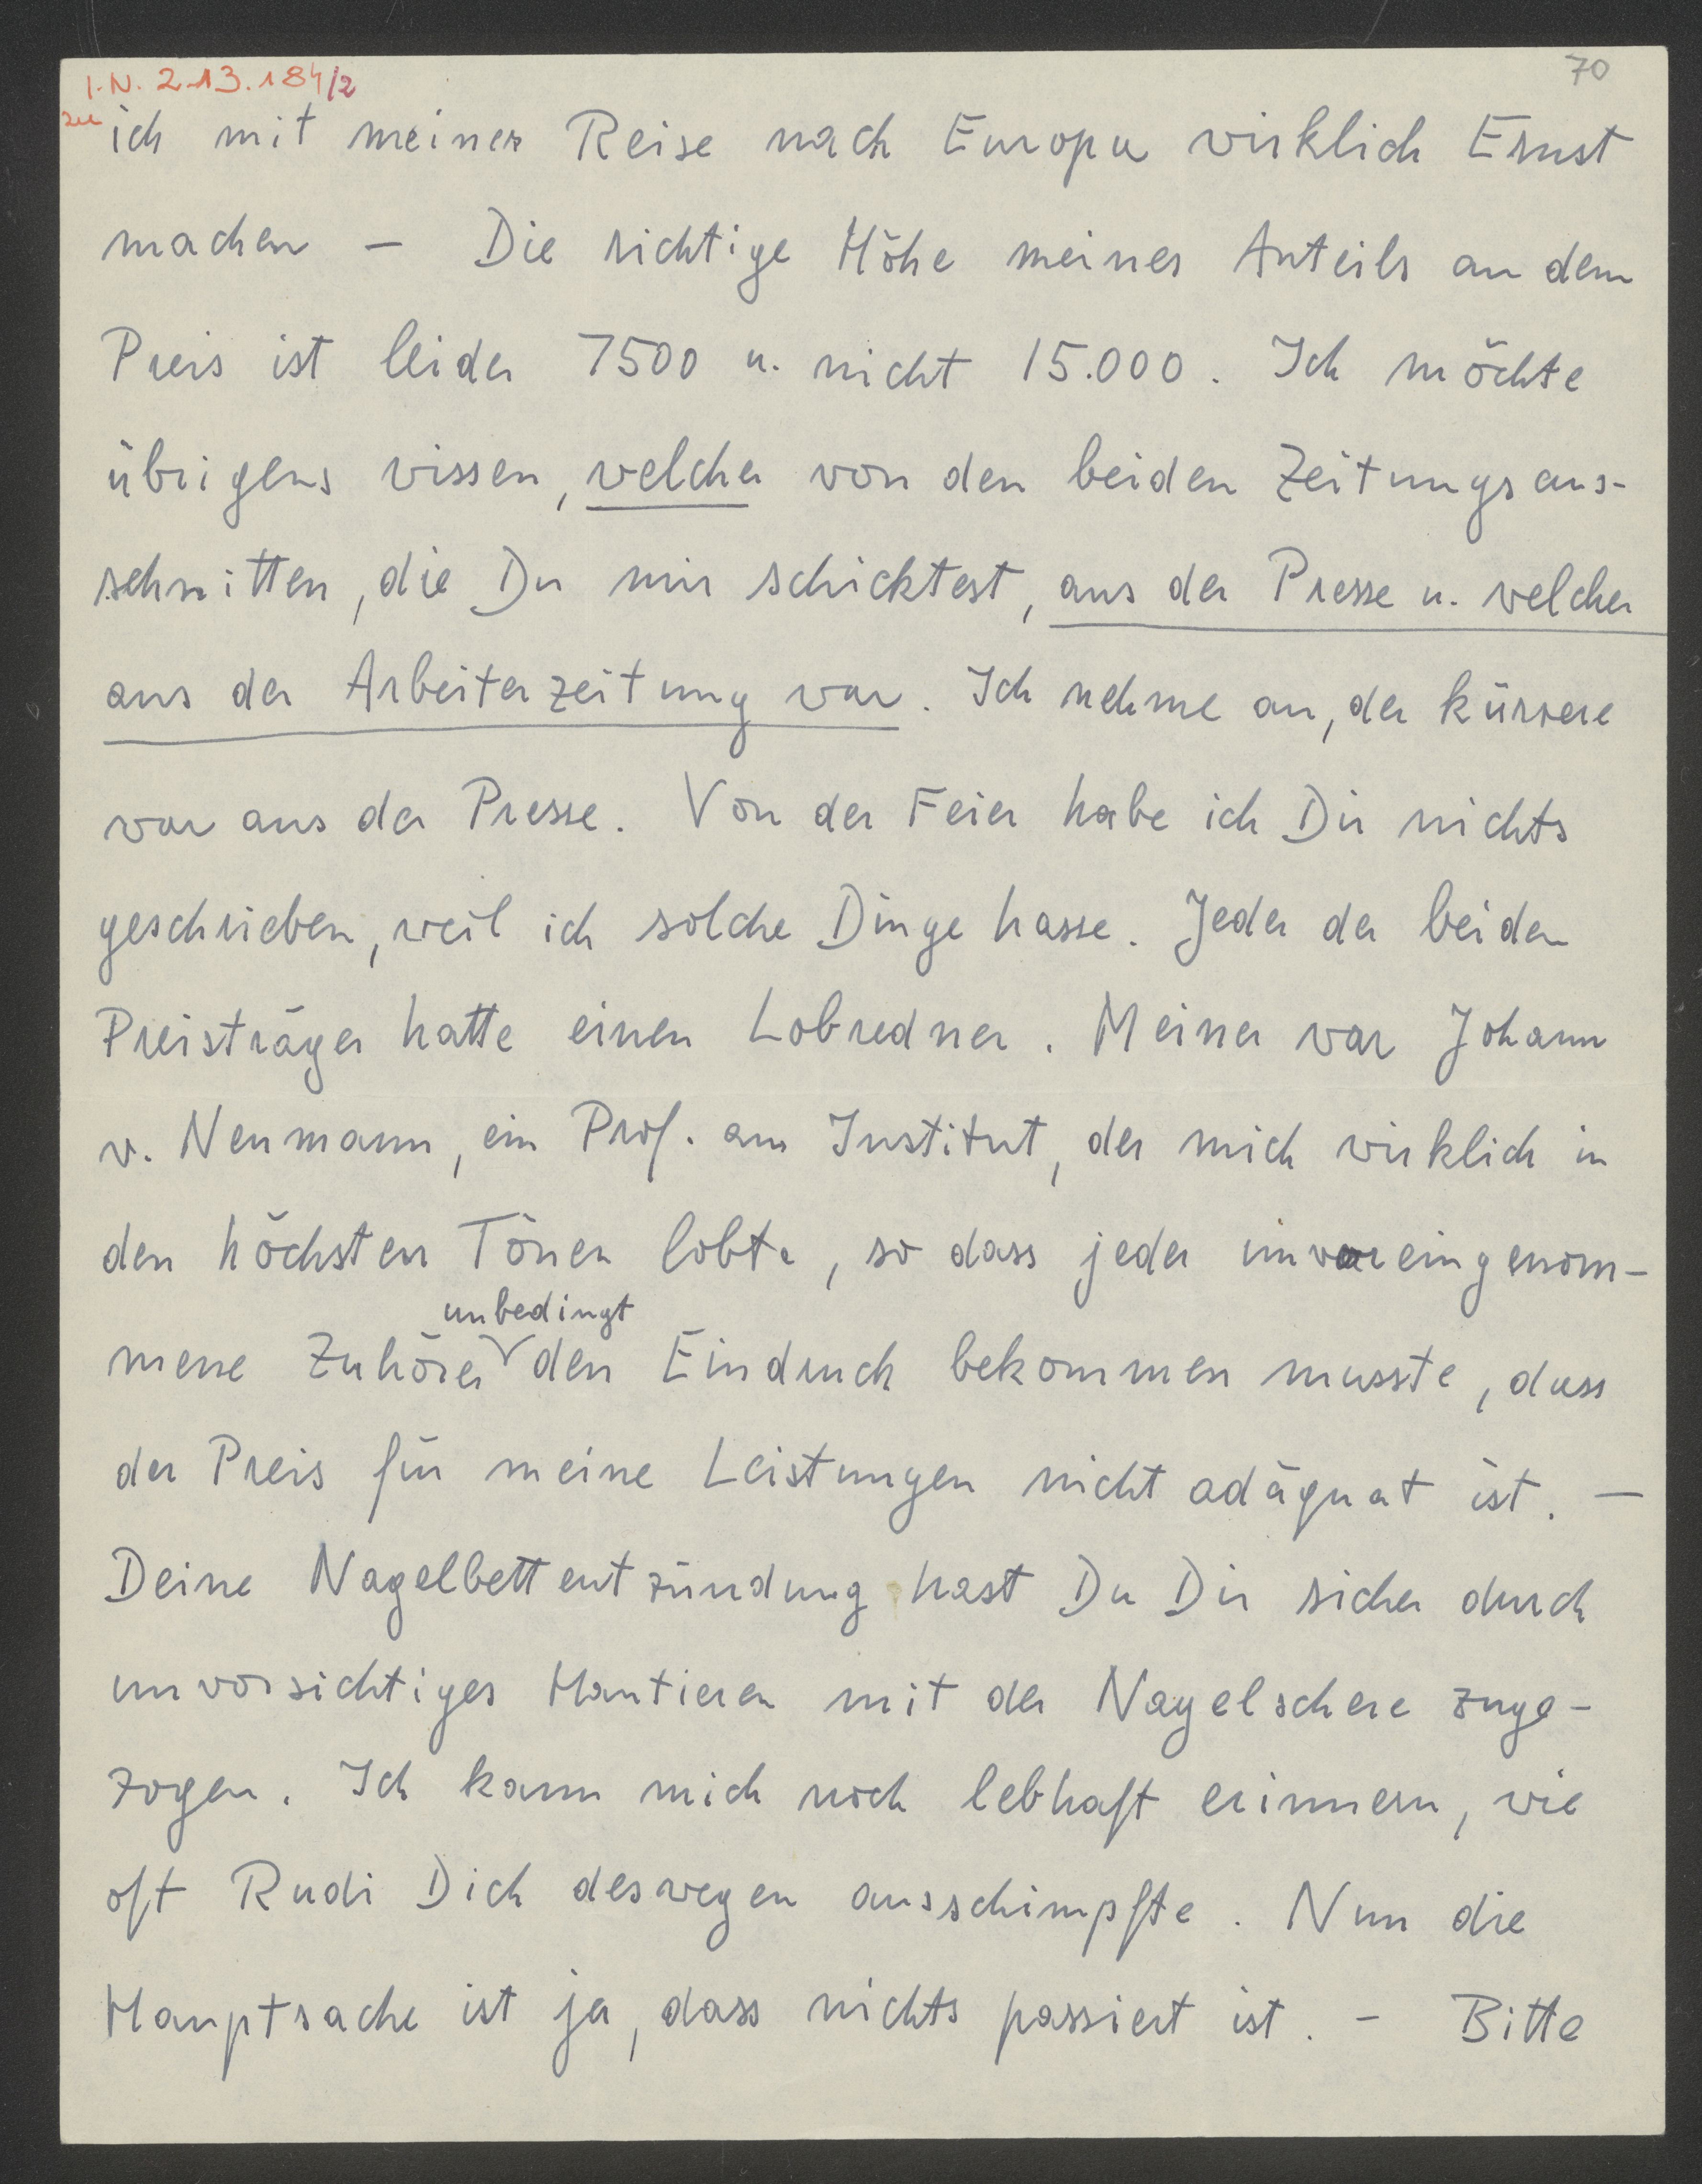 I.N. 213.184/2
70
zu
ich mit meiner Reise nach Europa wirklich Ernst
machen – Die richtige Höhe meines Anteils an dem
Preis ist leider 7500 u. nicht 15.000. Ich möchte
übrigens wissen, welcher von den beiden Zeitungsaus-
schnitten, die Du mir schicktest, aus der Presse u. welcher
aus der Arbeiterzeitung war. Ich nehme an, der kürzere
war aus der Presse. Von der Feier habe ich Dir nichts
geschrieben, weil ich solche Dinge hasse. Jeder der beiden
Preisträger hatte einen Lobredner. Meiner war Johann
v. Neumann, ein Prof. am Institut, der mich wirklich in
den höchsten Tönen lobte, so dass jeder unvoreingenom-
unbedingt
mene Zuhörer den Eindruck bekommen musste, dass
der Preis für meine Leistungen nicht adäquat ist. –
Deine Nagelbettentzündung hast Du Dir sicher durch
unvorsichtiges Hantieren mit der Nagelschere zuge-
zogen. Ich kann mich noch lebhaft erinnern, wie
oft Rudi Dich deswegen ausschimpfte. Nun die
Hauptsache ist ja, dass nichts passiert ist. – Bitte